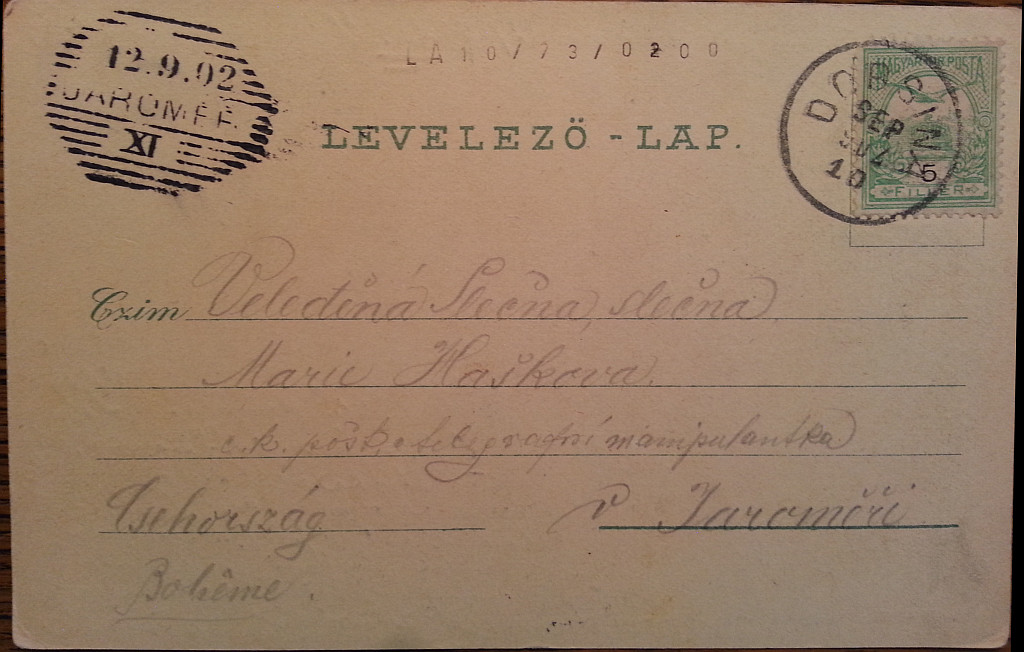 12.9.02
JAROMĚŘ.
XI
LA10/73/0200
LEVELEZŐ-LAP.
DOBSINA
SEP
10
MAGYAR KIR. POSTA
5
FILLÉR
Czim Veleděná Slečna, slečna
Marie Haškova.
c.k. pošt. a telegrafní manipulantka
Csehország v Jaroměři
Bohême.